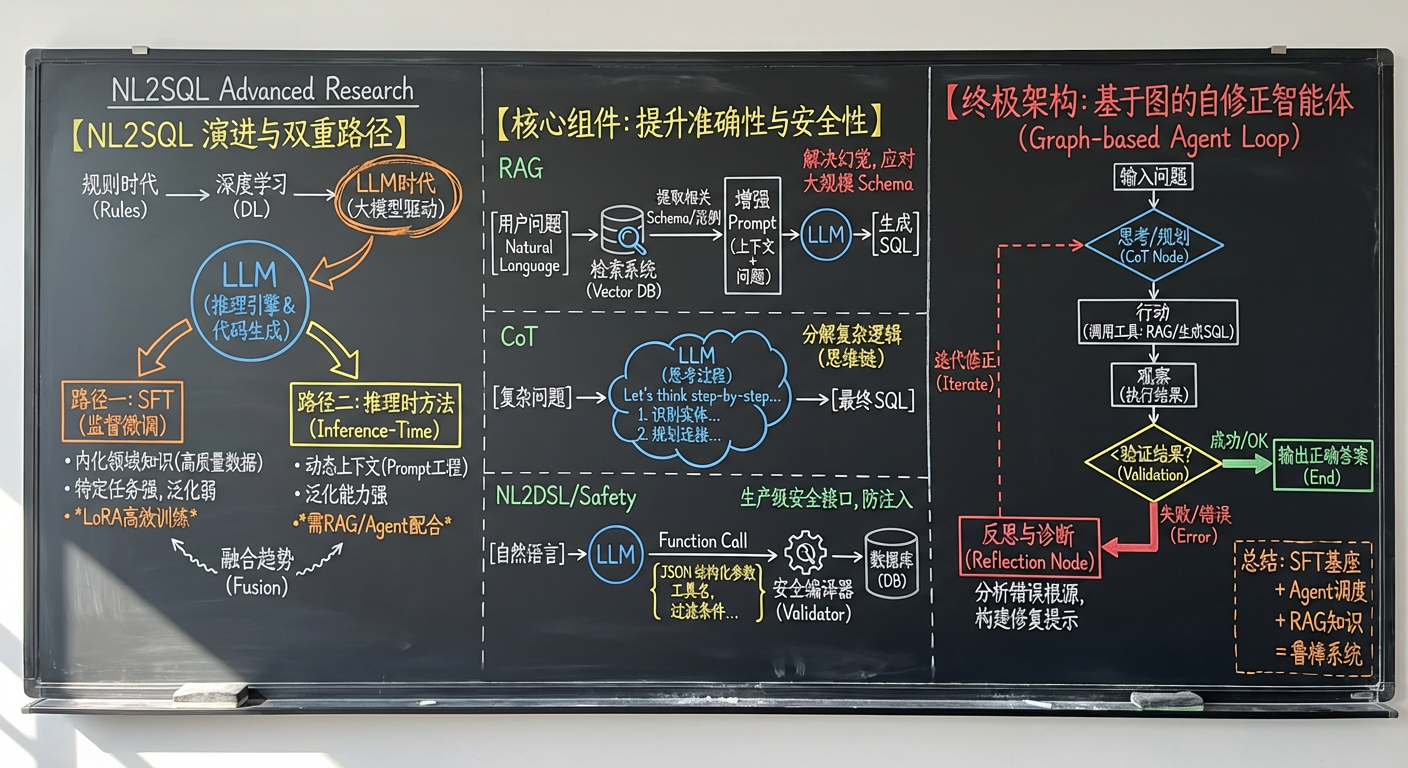 NL2SQL Advanced Research
【NL2SQL 演进与双重路径】
规则时代
(Rules)
深度学习
(DL)
LLM时代
(大模型驱动)
LLM
(推理引擎&
代码生成)
路径一: SFT
(监督微调)
• 内化领域知识(高质量数据)
• 特定任务强, 泛化弱
• *LoRA高效训练*
路径二: 推理时方法
(Inference-Time)
• 动态上下文(Prompt工程)
• 泛化能力强
• *需RAG/Agent配合*
融合趋势
(Fusion)
【核心组件: 提升准确性与安全性】
RAG
解决幻觉, 应对
大规模 Schema
[用户问题
Natural
Language]
检索系统
(Vector DB)
提取相关
Schema/范例
增强
Prompt
(上下文
+
问题)
LLM
[生成
SQL]
CoT
分解复杂逻辑
(思维链)
[复杂问题]
LLM
(思考过程)
Let's think step-by-step...
1. 识别实体...
2. 规划连接...
[最终SQL]
NL2DSL/Safety
生产级安全接口, 防注入
[自然语言]
LLM
Function Call
{JSON 结构化参数
工具名,
过滤条件...}
安全编译器
(Validator)
数据库
(DB)
【终极架构: 基于图的自修正智能体
(Graph-based Agent Loop)
输入问题
思考/规划
(CoT Node)
行动
(调用工具: RAG/生成SQL)
观察
(执行结果)
迭代修正
(Iterate)
<验证结果?
(Validation)
成功/OK
输出正确答案
(End)
失败/错误
(Error)
反思与诊断
(Reflection Node)
分析错误根源,
构建修复提示
总结: SFT基座
+ Agent调度
+ RAG知识
= 鲁棒系统